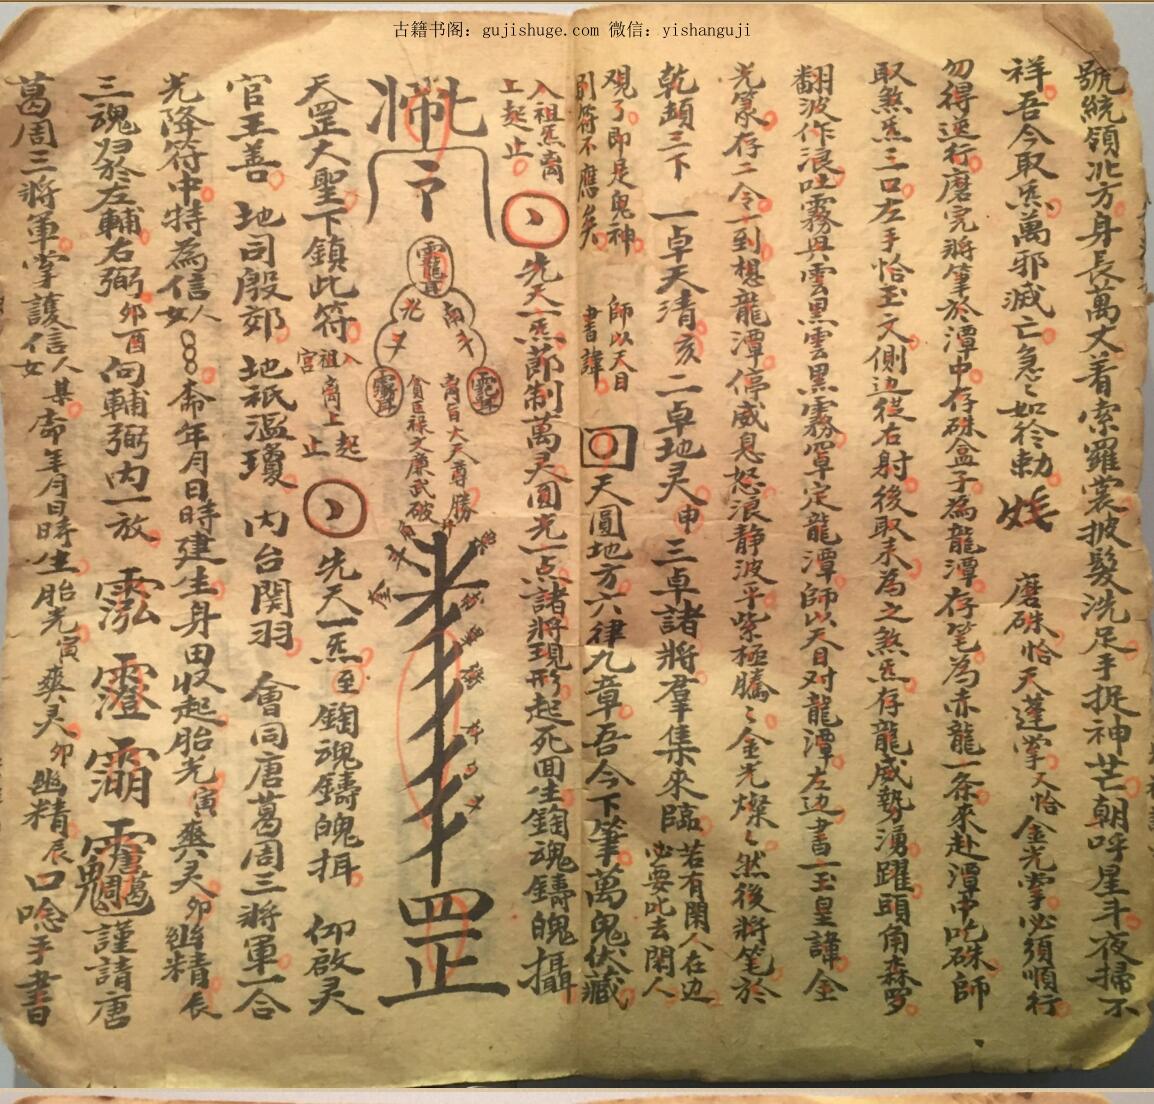 古籍书阁：gujishuge.com 微信：yishanguji
號統領北方身長萬丈着索羅裳披髮洗足手捉神芒朝呼星斗夜掃不
祥吾今取炁萬邪滅亡急〻如令勅 磨硃恰天蓬掌又恰金光掌必須順行
勿得逆行磨完將筆於潭中存硃盒子為龍潭存笔為赤龍一条來赴潭中吃硃師
取煞炁三口左手恰玉文側边從右射後取未為之煞炁存龍威势湧躍頭角森罗
翻波作浪吐霧興雲黑雲黑霧罩定龍潭師以天目对龍潭左边書一玉皇諱金
光篆存二令一到想龍潭停威息怒浪静波平紫極騰〻金光燦〻然後將笔於
乾顛三下 一卓天清亥 二卓地灵申 三卓諸將羣集來臨若有閑人在边
必要此去閑人
观了即是鬼神
則符不應矣
師以天目
書諱
天圓地方六律九章吾今下筆萬鬼伏藏
入祖炁离
上起止
先天一炁節制萬灵圓光一点諸將現形起死回生鍧魂鑄魄攝
罡
天罡大聖下鎮此符
入祖宮
离上起止
先天一炁至鍧魂鑄魄揖 仰啟灵
官王善 地司殷郊 地祇溫瓊 内台関羽 會同唐葛周三將軍一合
光降符中特為信人女 年月日時建生身田收起胎光寅爽灵卯幽精辰
三魂归於左輔右弼卯酉向輔弼内一放 謹請唐
葛周三將軍掌護信人女某 年年月日時生胎光寅爽灵卯幽精辰口唸手書